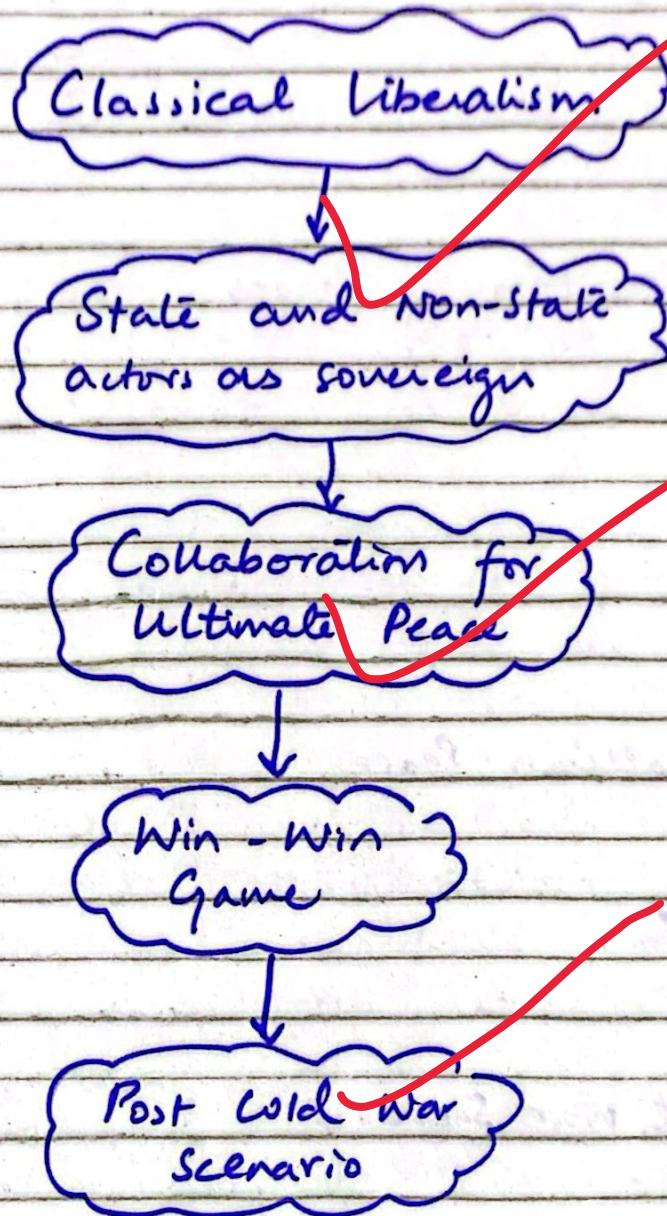 Classical Liberalism
State and Non-State
actors as sovereign
Collaboration for
Ultimate Peace
Win-Win
Game
Post Cold War
scenario